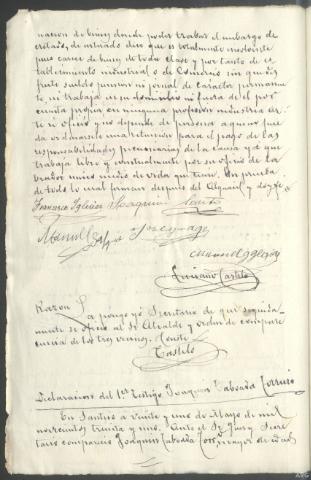 nacion de bienes donde poder trabar el embargo de
cretado, de palabra dice que es totalmente insolvente
pues carece de bienes de toda clase y por tanto de es
tablecimiento industrial o de Comercio sin que dis
frute sueldo pension ni jornal de carácter permanen
te ni trabaja en su domicilio ni fuera de el por
cuenta propia en ninguna profesion industria ar
te ni oficio y no depende de persona alguna que
da ordenarsele una retencion para el pago de las
responsabilidades pecuniarias de la causa ya que
trabaja libre y eventualmente por su oficio de la
brador unico medio de vida que tiene. En prueba
de todo lo cual firman despues del Alguacil y doy fe
Francisco Iglesias Joaquin
Manuel
Manuel
Luciano Castelo
Razon La pongo yo Secretario de que seguida
mente se oficio al Sr Alcalde y orden de compare
cencia de los tres vecinos. Conste
Castelo
Declaracion del 1er testigo Joaquin Taboada
En Santiso a veinte y uno de Mayo de mil
novecientos treinta y uno. Ante el Sr Juez y Secre
tario comparecio Joaquin Taboada mayor de edad